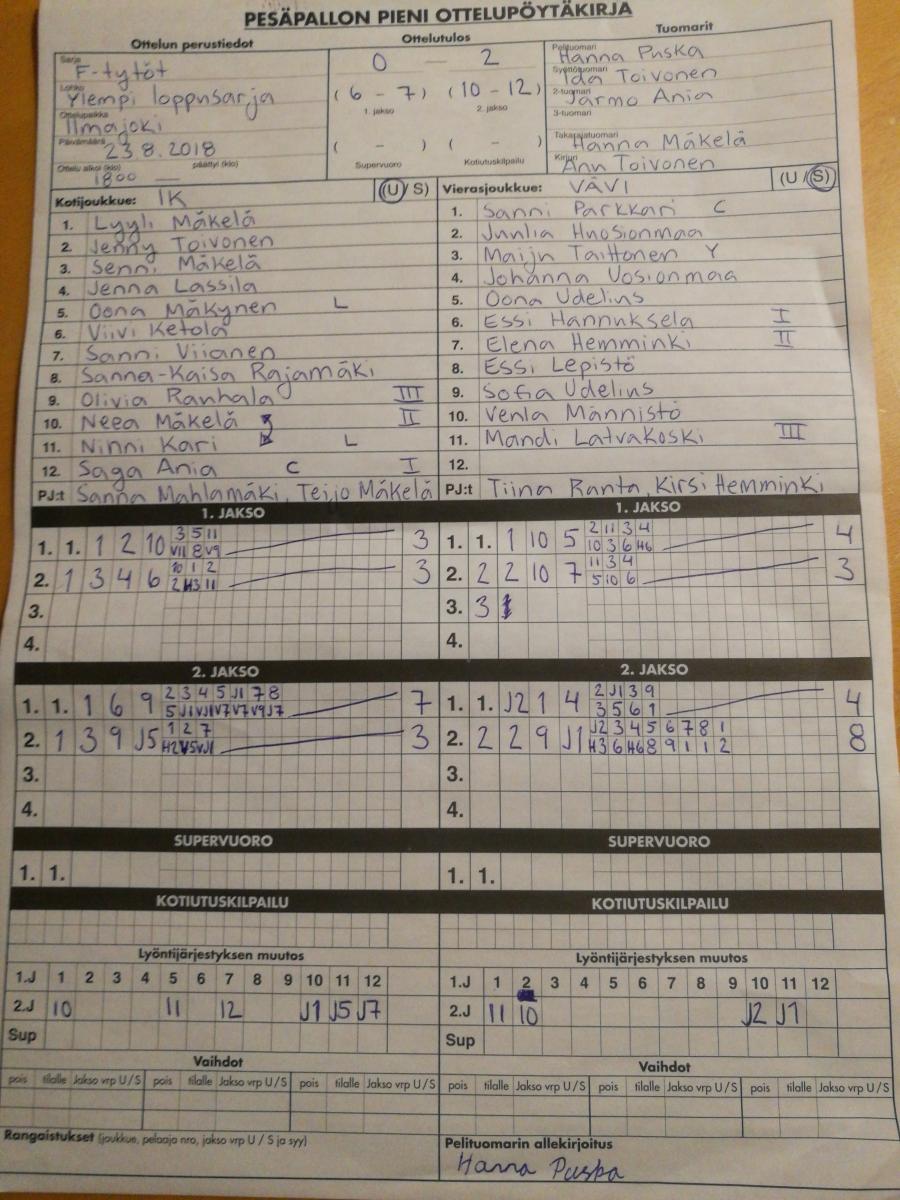 PESÄPALLON PIENI OTTELUPÖYTÄKIRJA
Ottelun perustiedot Ottelutulos Tuomarit
Sarja F-tytöt
Lohko Ylempi loppusarja
Ottelupaikka Ilmajoki
Päivämäärä 23.8.2018
Ottelu alkoi (klo) 1800 päättyi (klo) —
0 — 2
(6 - 7) (10 - 12)
1. jakso 2. jakso
( - ) ( - )
Supervuoro Kotiutuskilpailu
Pelituomari Hanna Puska
Syöttötuomari Ida Toivonen
2-tuomari Jarmo Ania
3-tuomari
Takarajatuomari Hanna Mäkelä
Kirjuri Anu Toivonen
Kotijoukkue: IK (U / S)
1. Lyyli Mäkelä
2. Jenny Toivonen
3. Senni Mäkelä
4. Jenna Lassila
5. Oona Mäkynen L
6. Viivi Ketola
7. Sanni Viianen
8. Sanna-Kaisa Rajamäki
9. Olivia Ranhala III
10. Neea Mäkelä II
11. Ninni Kari L
12. Saga Ania C I
PJ:t Sanna Mahlamäki, Teijo Mäkelä
Vierasjoukkue: VÄVI (U / S)
1. Sanni Parkkari C
2. Junlia Huosionmaa
3. Maiju Taittonen Y
4. Johanna Vosionmaa
5. Oona Udelins
6. Essi Hannuksela I
7. Elena Hemminki II
8. Essi Lepistö
9. Sofia Udelins
10. Venla Männistö
11. Mandi Latvakoski III
12.
PJ:t Tiina Ranta, Kirsi Hemminki
1. JAKSO
1. 1. 1 2 10 3 5 11 3
V11 8 V9
2. 1 3 4 6 10 1 2 3
2 H3 11
3.
4.
1. JAKSO
1. 1. 1 10 5 2 11 3 4 4
10 3 6 H6
2. 2 2 10 7 11 3 4 3
5 10 6
3. 3
4.
2. JAKSO
1. 1. 1 6 9 2 3 4 5 J1 7 8 7
5 J1 VJ1 V7 V7 V9 J7
2. 1 3 9 J5 1 2 7 3
H2 V5 VJ1
3.
4.
2. JAKSO
1. 1. J2 1 4 2 J1 3 9 4
3 5 6 1
2. 2 2 9 J1 J2 3 4 5 6 7 8 1 8
H3 6 H6 8 9 1 1 2
3.
4.
SUPERVUORO SUPERVUORO
1. 1. 1. 1.
KOTIUTUSKILPAILU KOTIUTUSKILPAILU
Lyöntijärjestyksen muutos
1.J 1 2 3 4 5 6 7 8 9 10 11 12
2.J 10 11 12 J1 J5 J7
Sup
Lyöntijärjestyksen muutos
1.J 1 2 3 4 5 6 7 8 9 10 11 12
2.J 11 10 J2 J1
Sup
Vaihdot Vaihdot
pois tilalle Jakso vrp U / S pois tilalle Jakso vrp U / S pois tilalle Jakso vrp U / S
pois tilalle Jakso vrp U / S pois tilalle Jakso vrp U / S pois tilalle Jakso vrp U / S
Rangaistukset (joukkue, pelaaja nro, jakso vrp U / S ja syy)
Pelituomarin allekirjoitus
Hanna Puska